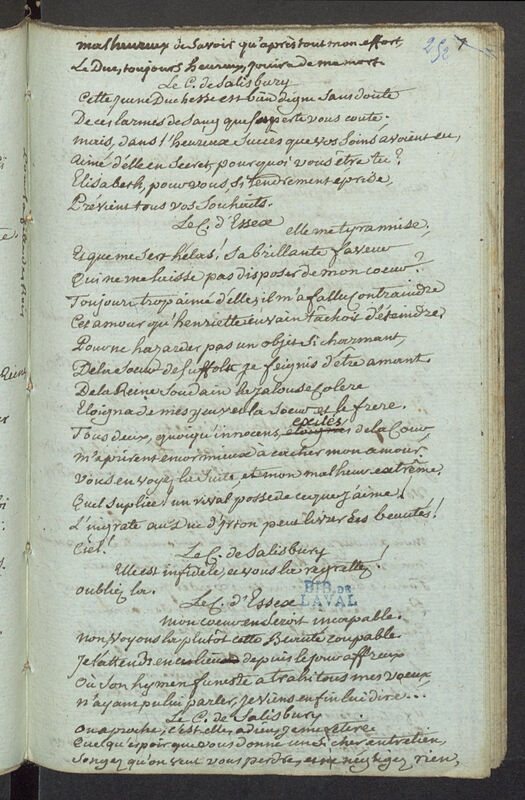 252 7
malheureux de Savoir qu'après tout mon effort,
Le Duc, toujours heureux, jouira de ma mort
Le C. de Salisbury
Cette jeune Duchesse est bien digne sans doute
De ces larmes de Sang que sa perte vous coute.
mais, dans l'heureux Succès que vos Soins avoient eu,
Aimé d'elle en Secret, pourquoi vous être tu?
Elisabeth, pour vous, Si tendrement eprise,
Prévient tous vos Souhaits.
Le C. d'Essex
elle me tyrannise.
Et que me sert hélas! Sa brillante faveur
Qui ne me laisse pas disposer de mon coeur?
Toujours trop aimé d'elle, il m'a fallu Contraindre
Cet amour qu'henriette en vain tachoit d'éteindre
Pour ne hazarder pas un objet Si charmant,
De la Soeur de Suffolk je feignis d'être amant
De la Reine Soudain la jalouse Colere
Eloigna de mes yeux et la Soeur et le frere.
exilés
Tous deux, quoiqu'innocens, de la Cour
m'aprirent encor mieux à cacher mon amour
Vous en voyez la Suite, et mon malheur extrême.
Quel Suplice! un rival possede ce que j'aime!
L'ingrate au Duc d'Irton peut livrer Ses beautés!
Ciel!
Le C. de Salisbury
Elle est infidele, et vous la regrettez!
oubliez la.
Le C. d'Essex
BIB. DE
LAVAL
mon coeur en Seroit incapable.
non voyons la plutôt cette Beauté coupable.
Je l'attends en ce lieu depuis le jour affreux
Où Son hymen funeste a trahi tous mes voeux
n'ayant pu lui parler, je viens enfin lui dire...
Le C. de Salisbury
On aproche, c'est elle, adieu, je me retire
Quelqu'espoir que vous donne un Si cher entretien,
Songez qu'on veut vous perdre, et ne négligez rien,